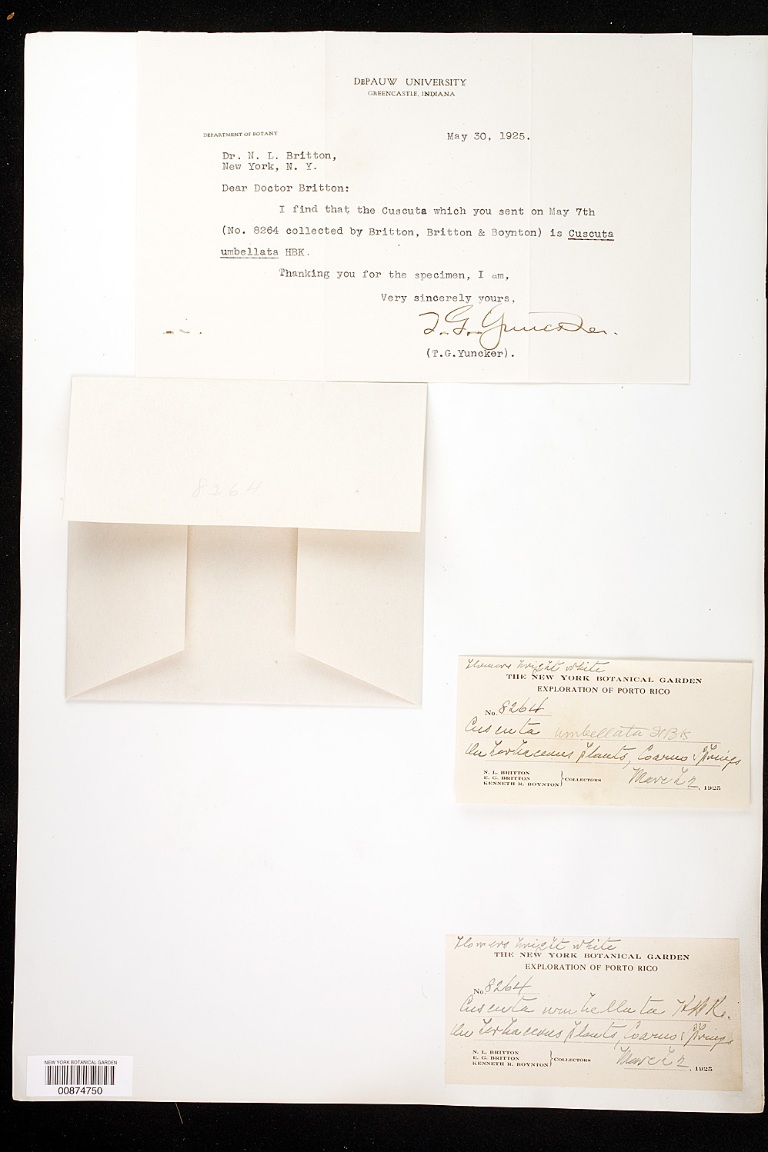 DEPAUW UNIVERSITY
GREENCASTLE, INDIANA
DEPARTMENT OF BOTANY
May 30, 1925.
Dr. N. L. Britton,
New York, N. Y.
Dear Doctor Britton:
I find that the Cuscuta which you sent on May 7th
(No. 8264 collected by Britton, Britton & Boynton) is Cuscuta
umbellata HBK.
Thanking you for the specimen, I am,
Very sincerely yours,
T. G. Yuncker.
(T.G.Yuncker).
8264
Flowers bright white
THE NEW YORK BOTANICAL GARDEN
EXPLORATION OF PORTO RICO
No. 8264
Cuscuta umbellata HBK
On herbaceous plants, Coamo Springs
N. L. BRITTON
E. G. BRITTON
KENNETH R. BOYNTON
COLLECTORS
March 2, 1925
Flowers bright white
THE NEW YORK BOTANICAL GARDEN
EXPLORATION OF PORTO RICO
No. 8264
Cuscuta umbellata HBK.
On herbaceous plants, Coamo Springs
N. L. BRITTON
E. G. BRITTON
KENNETH R. BOYNTON
COLLECTORS
March 2, 1925
NEW YORK BOTANICAL GARDEN
00874750